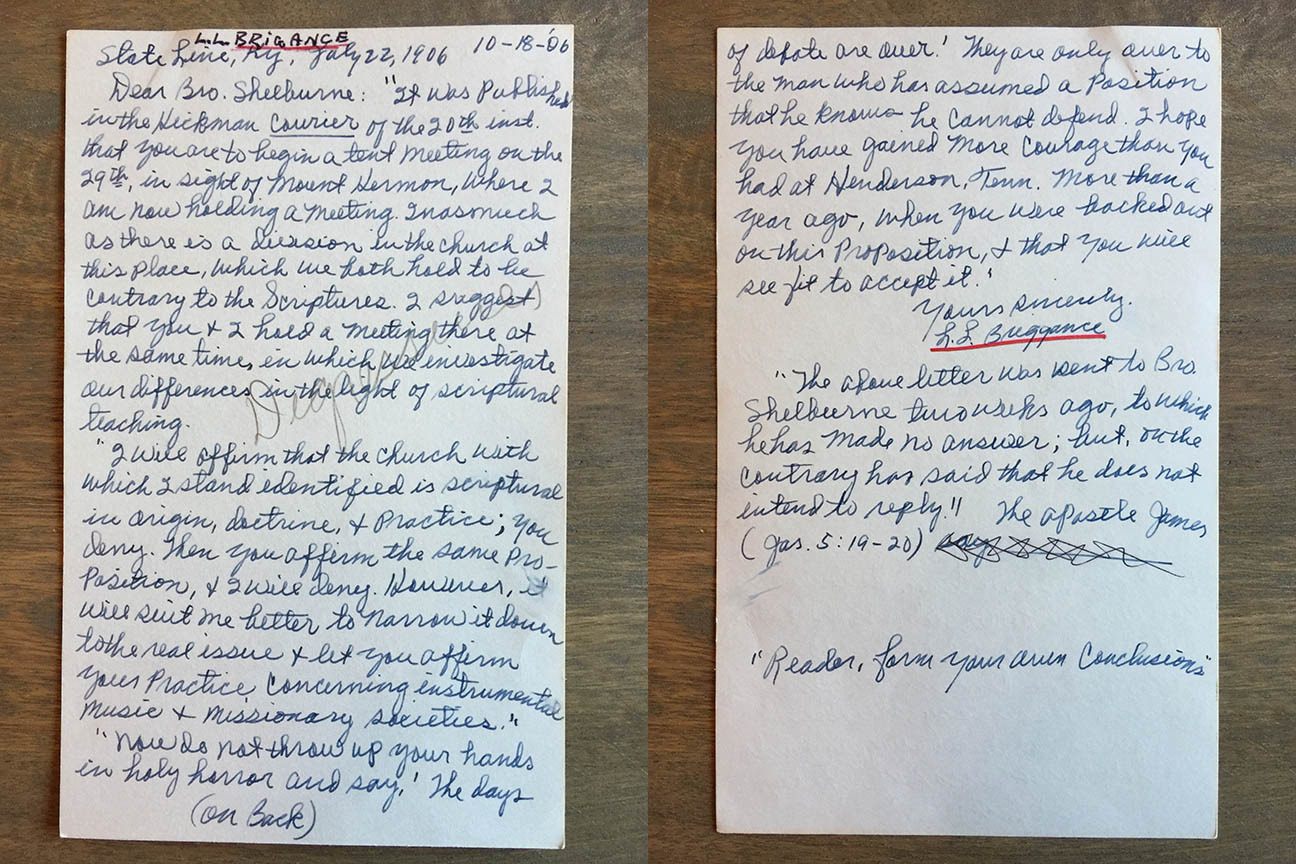 L.L. BRIGANCE
State Line, Ky, July 22, 1906 10-18-'06
Dear Bro. Shelburne: "It was Published
in the Hickman Courier of the 20th inst.
that you are to begin a tent meeting on the
29th, in sight of Mount Hermon, where I
am now holding a meeting. Inasmuch
as there is a division in the church at
this place, which we both hold to be
contrary to the Scriptures. I suggest
that you & I hold a meeting there at
the same time, in which we investigate
our differences in the light of scriptural
teaching.
"I will affirm that the church with
which I stand identified is scriptural
in origin, doctrine, & Practice; you
deny. Then you affirm the same Pro-
Position, & I will deny. However, it
will suit me better to narrow it down
to the real issue & let you affirm
your Practice concerning instrumental
Music & Missionary societies."
"Now do not throw up your hands
in holy horror and say,' The days
(On Back)
of debate are over.' They are only over to
the man who has assumed a Position
that he knows he cannot defend. I hope
you have gained More courage than you
had at Henderson, Tenn. More than a
year ago, when you were backed out
on this Proposition, & that you will
see fit to accept it.'
Yours sincerely.
L.L. Briggance
"The above letter was sent to Bro.
Shelburne two weeks ago, to which
he has made no answer; but, on the
contrary has said that he does not
intend to reply!! The apostle James
(Jas. 5:19-20)
"Reader, form your own Conclusions"